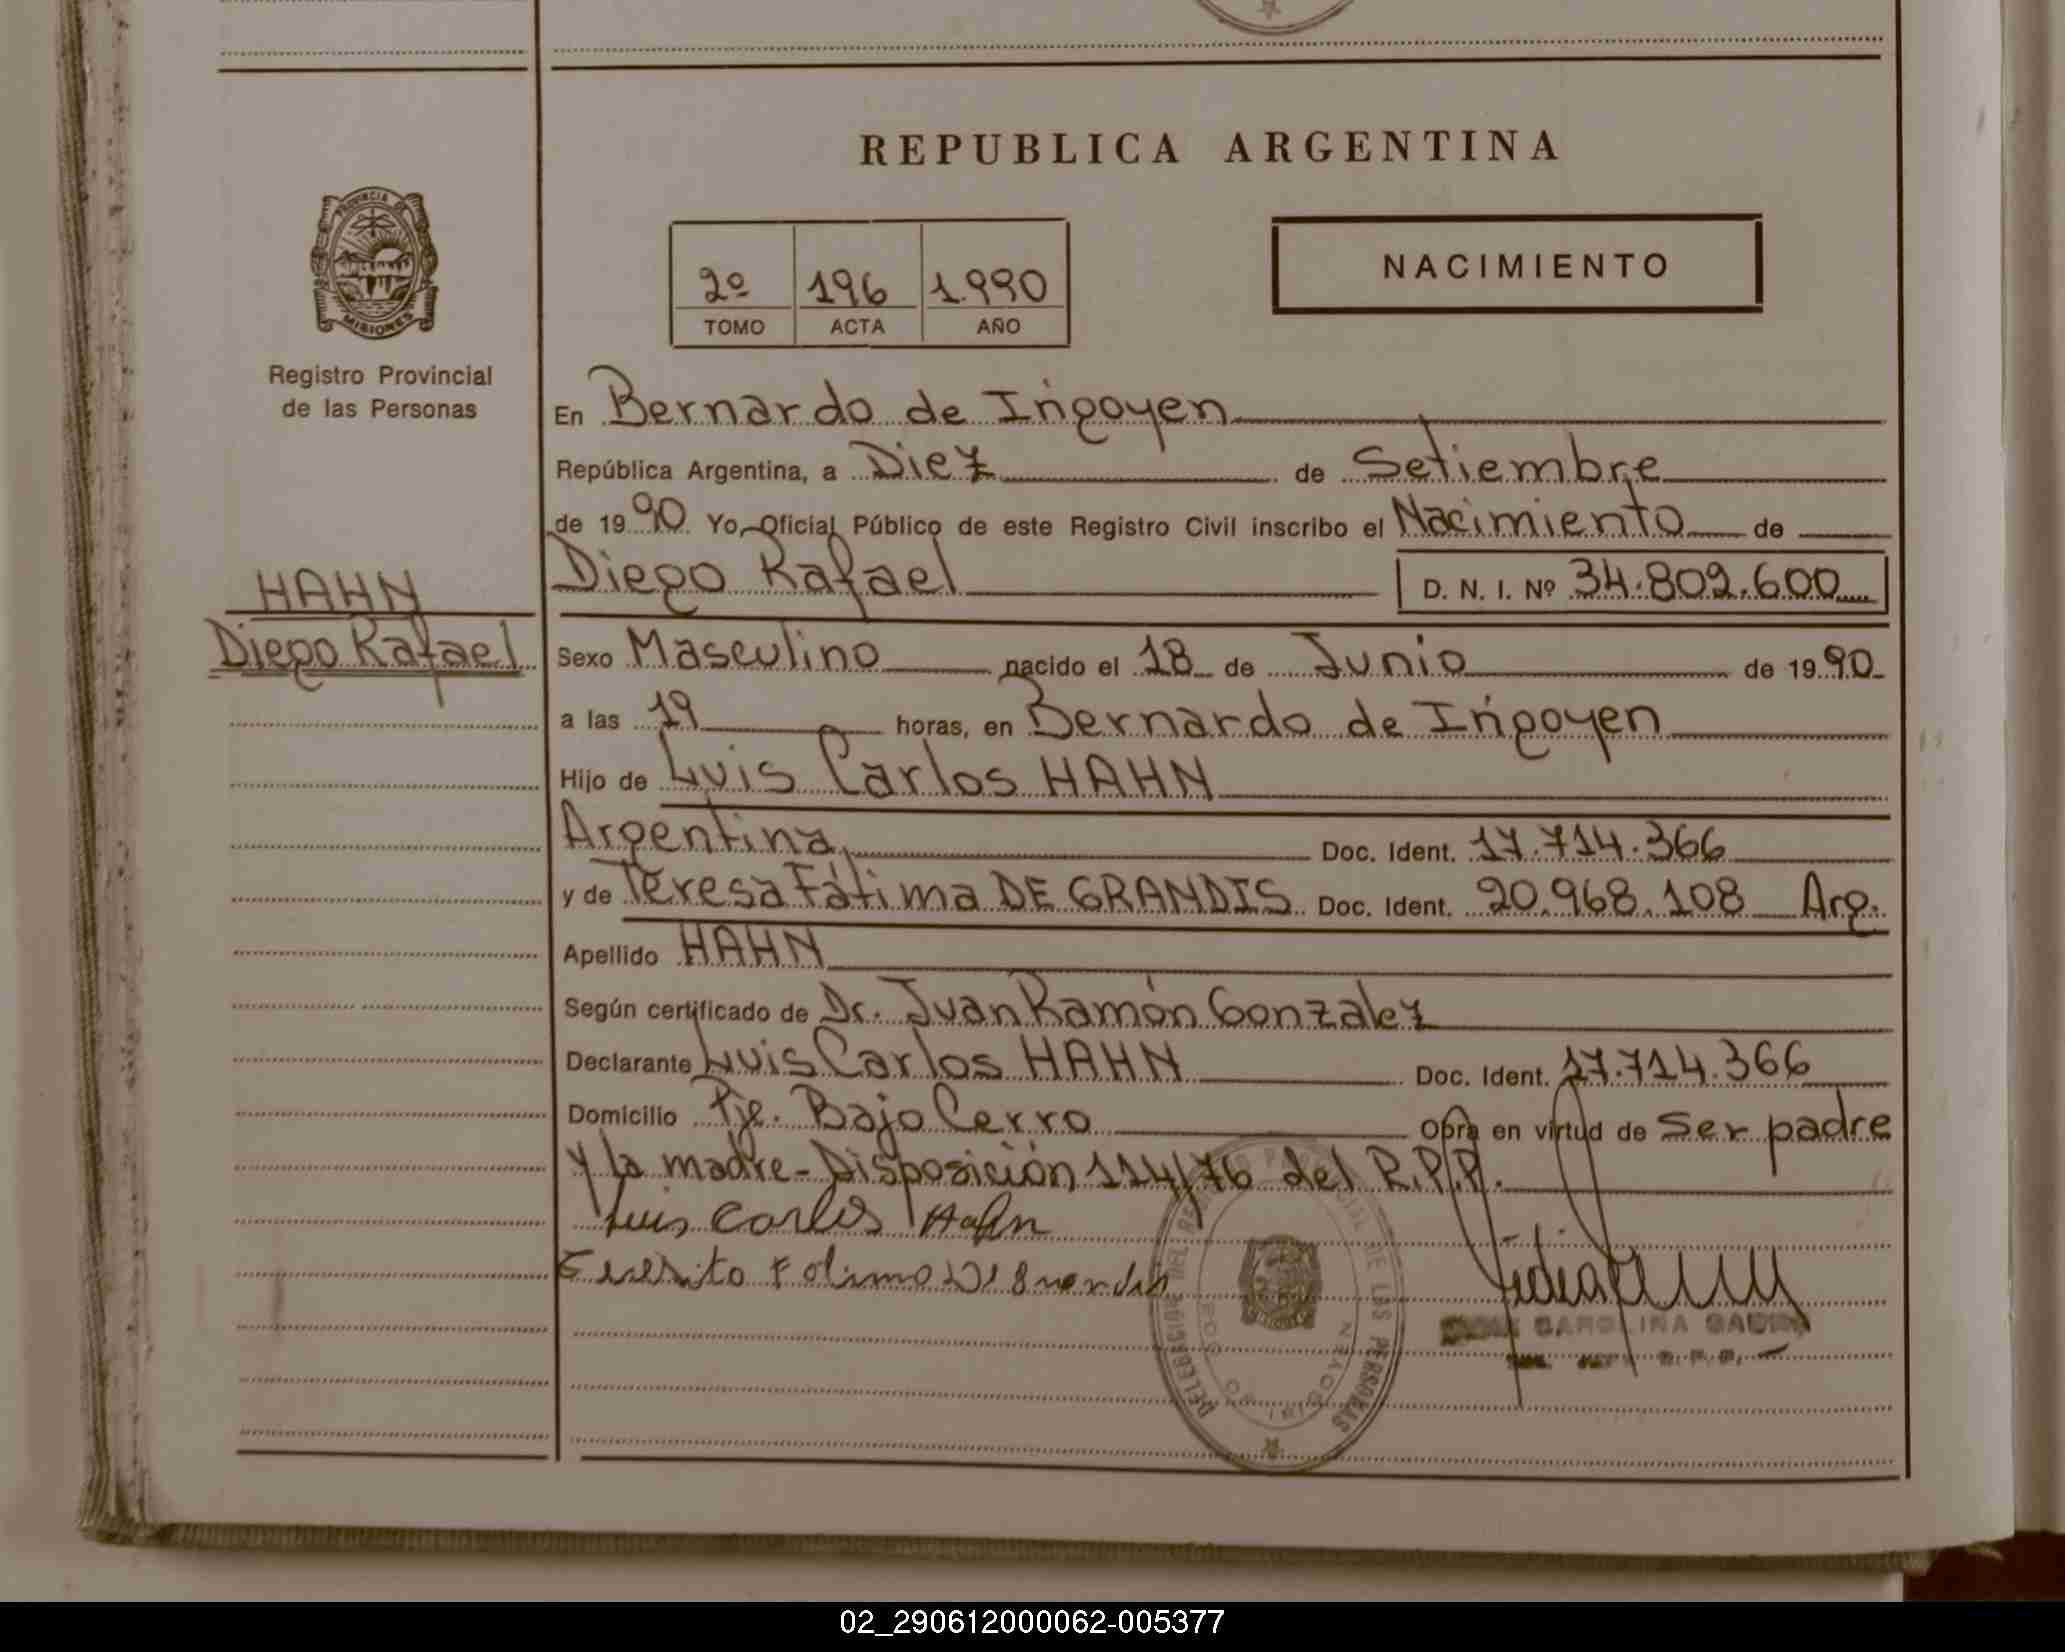 REPUBLICA ARGENTINA
PROVINCIA DE
MISIONES
Registro Provincial
de las Personas
2º 196 1.990
TOMO ACTA AÑO
NACIMIENTO
En Bernardo de Irigoyen
República Argentina, a Diez de Setiembre
de 1990 Yo, Oficial Público de este Registro Civil inscribo el Nacimiento de
Diego Rafael D. N. I. Nº 34.802.600
HAHN
Diego Rafael
Sexo Masculino nacido el 18 de Junio de 1990
a las 19 horas, en Bernardo de Irigoyen
Hijo de Luis Carlos HAHN
Argentina, Doc. Ident. 17.714.366
y de Teresa Fátima DE GRANDIS Doc. Ident. 20.968.108 Arg.
Apellido HAHN
Según certificado de Dr. Juan Ramón Gonzalez
Declarante Luis Carlos HAHN Doc. Ident. 17.714.366
Domicilio Pje. Bajo Cerro Obra en virtud de ser padre
y la madre - Disposición 114/76 del R.P.P.
Luis Carlos Hahn
DELEGACION DEL REGISTRO PROVINCIAL DE LAS PERSONAS
CAROLINA
02_290612000062-005377